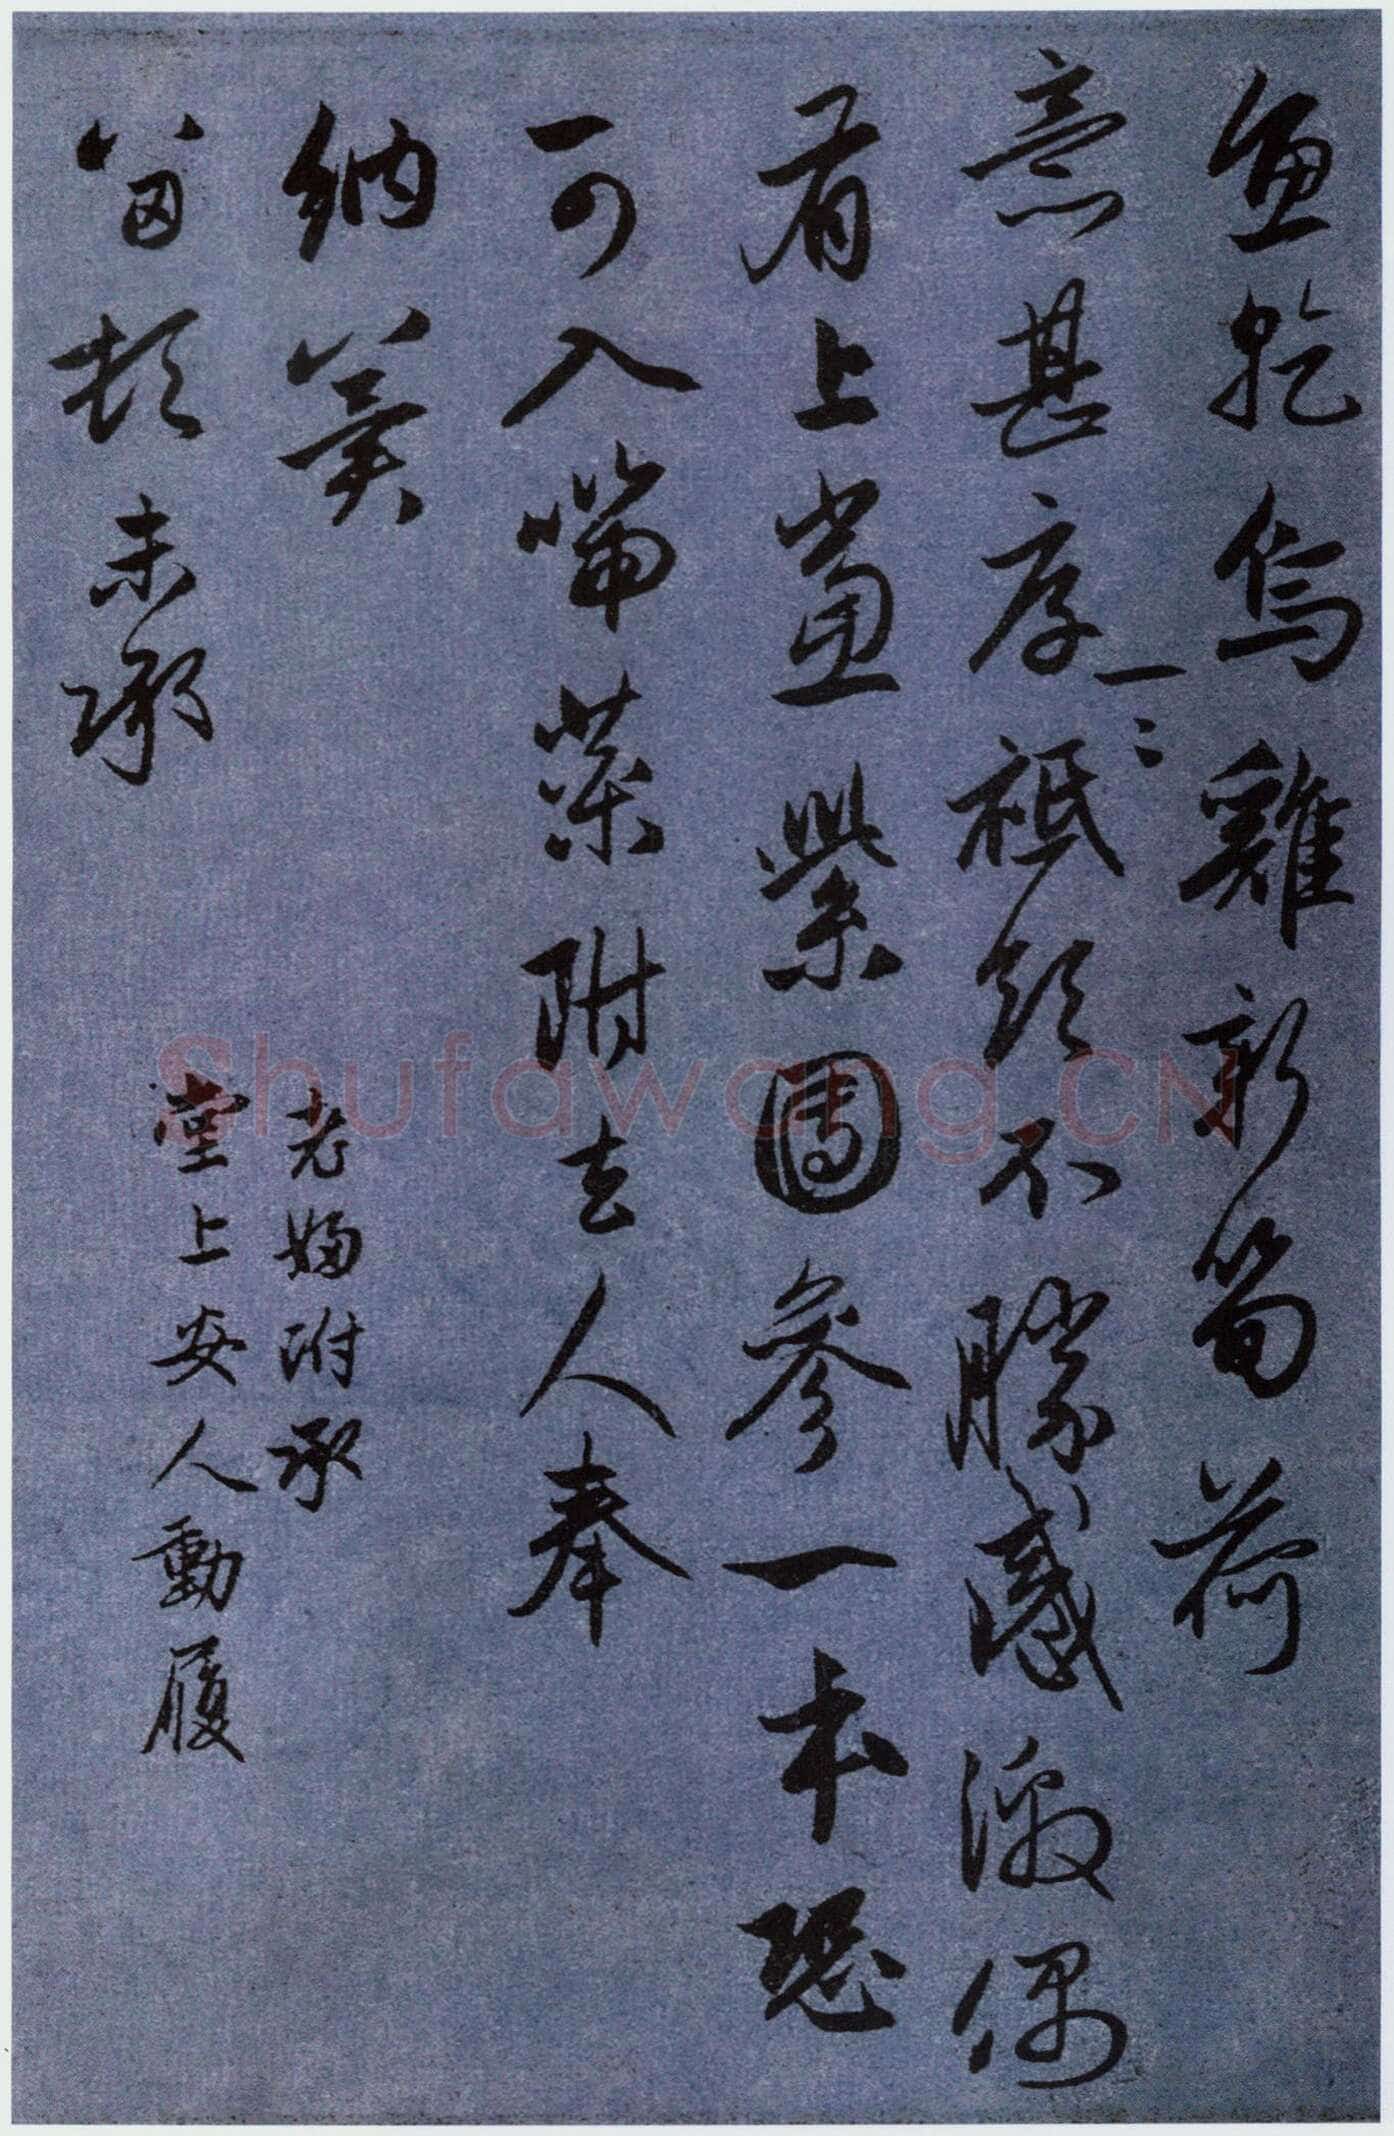 魚乾烏雞新筍荷
意甚厚一〻祗領不勝感激偶
有上黨紫團參一本恐
一可入喘藥附去人奉
納冀
留頓未承
老婦附承
堂上安人動履
Shufawang.CN